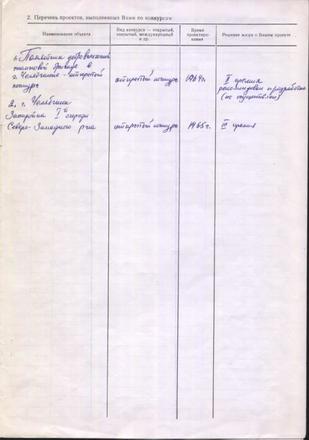 2. Перечень проектов, выполненных Вами по конкурсам
Наименование объекта
Вид конкурса — открытый, закрытый, международный и пр.
Время проектирования
Решение жюри о Вашем проекте
1. Памятник добровольческой
танковой бригаде в
г. Челябинске - открытый
конкурс
открытый конкурс
1964 г.
II премия
рекомендован к разработке
(не осуществлен)
2. г. Челябинск
Застройка I й очереди
Северо-Западного р-на
открытый конкурс
1965 г.
III премия